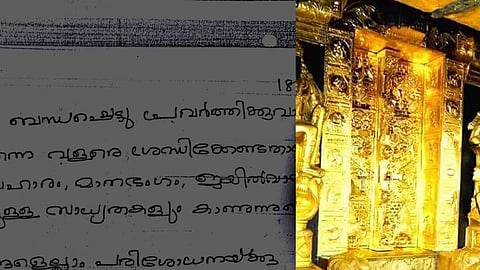 18
ബന്ധപ്പെട്ടു പ്രവർത്തിക്കുവാ
ന്ന വളരെ ശ്രദ്ധിക്കേണ്ടതാ
ഹാരം, മാനഭംഗം, ജയിൽവാ
ള്ള സാധ്യതകളും കാണുന്നു
ളെല്ലാം പരിശോധനയ്ക്കു